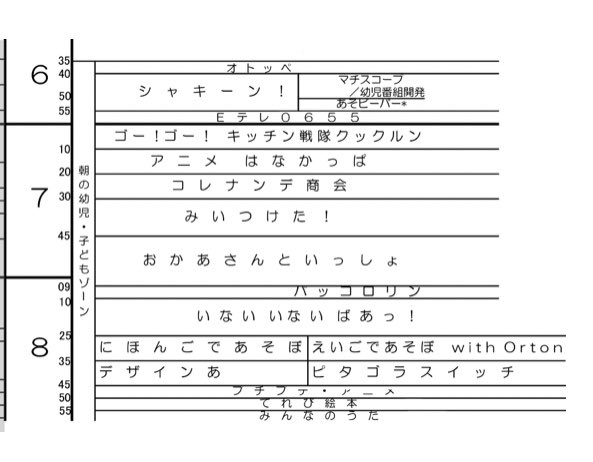 6
35
オトッペ
40
シャキーン！
マチスコープ
／幼児番組開発
50
あそビーバー*
55
Eテレ０６５５
朝の幼児・子どもゾーン
7
ゴー！ゴー！ キッチン戦隊クックルン
10
アニメ はなかっぱ
20
コレナンデ商会
30
みいつけた！
45
おかあさんといっしょ
8
09
パッコロリン
10
いないいないばあっ！
25
にほんごであそぼ えいごであそぼ with Orton
35
デザインあ ピタゴラスイッチ
45
プチプチ・アニメ
50
てれび絵本
55
みんなのうた